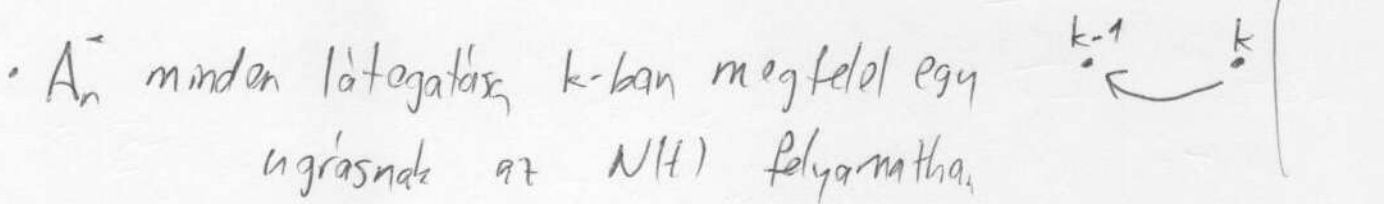 • Aₙ⁻ minden látogatása k-ban megfelel egy
k-1 k
ugrásnak az N(t) folyamatba.